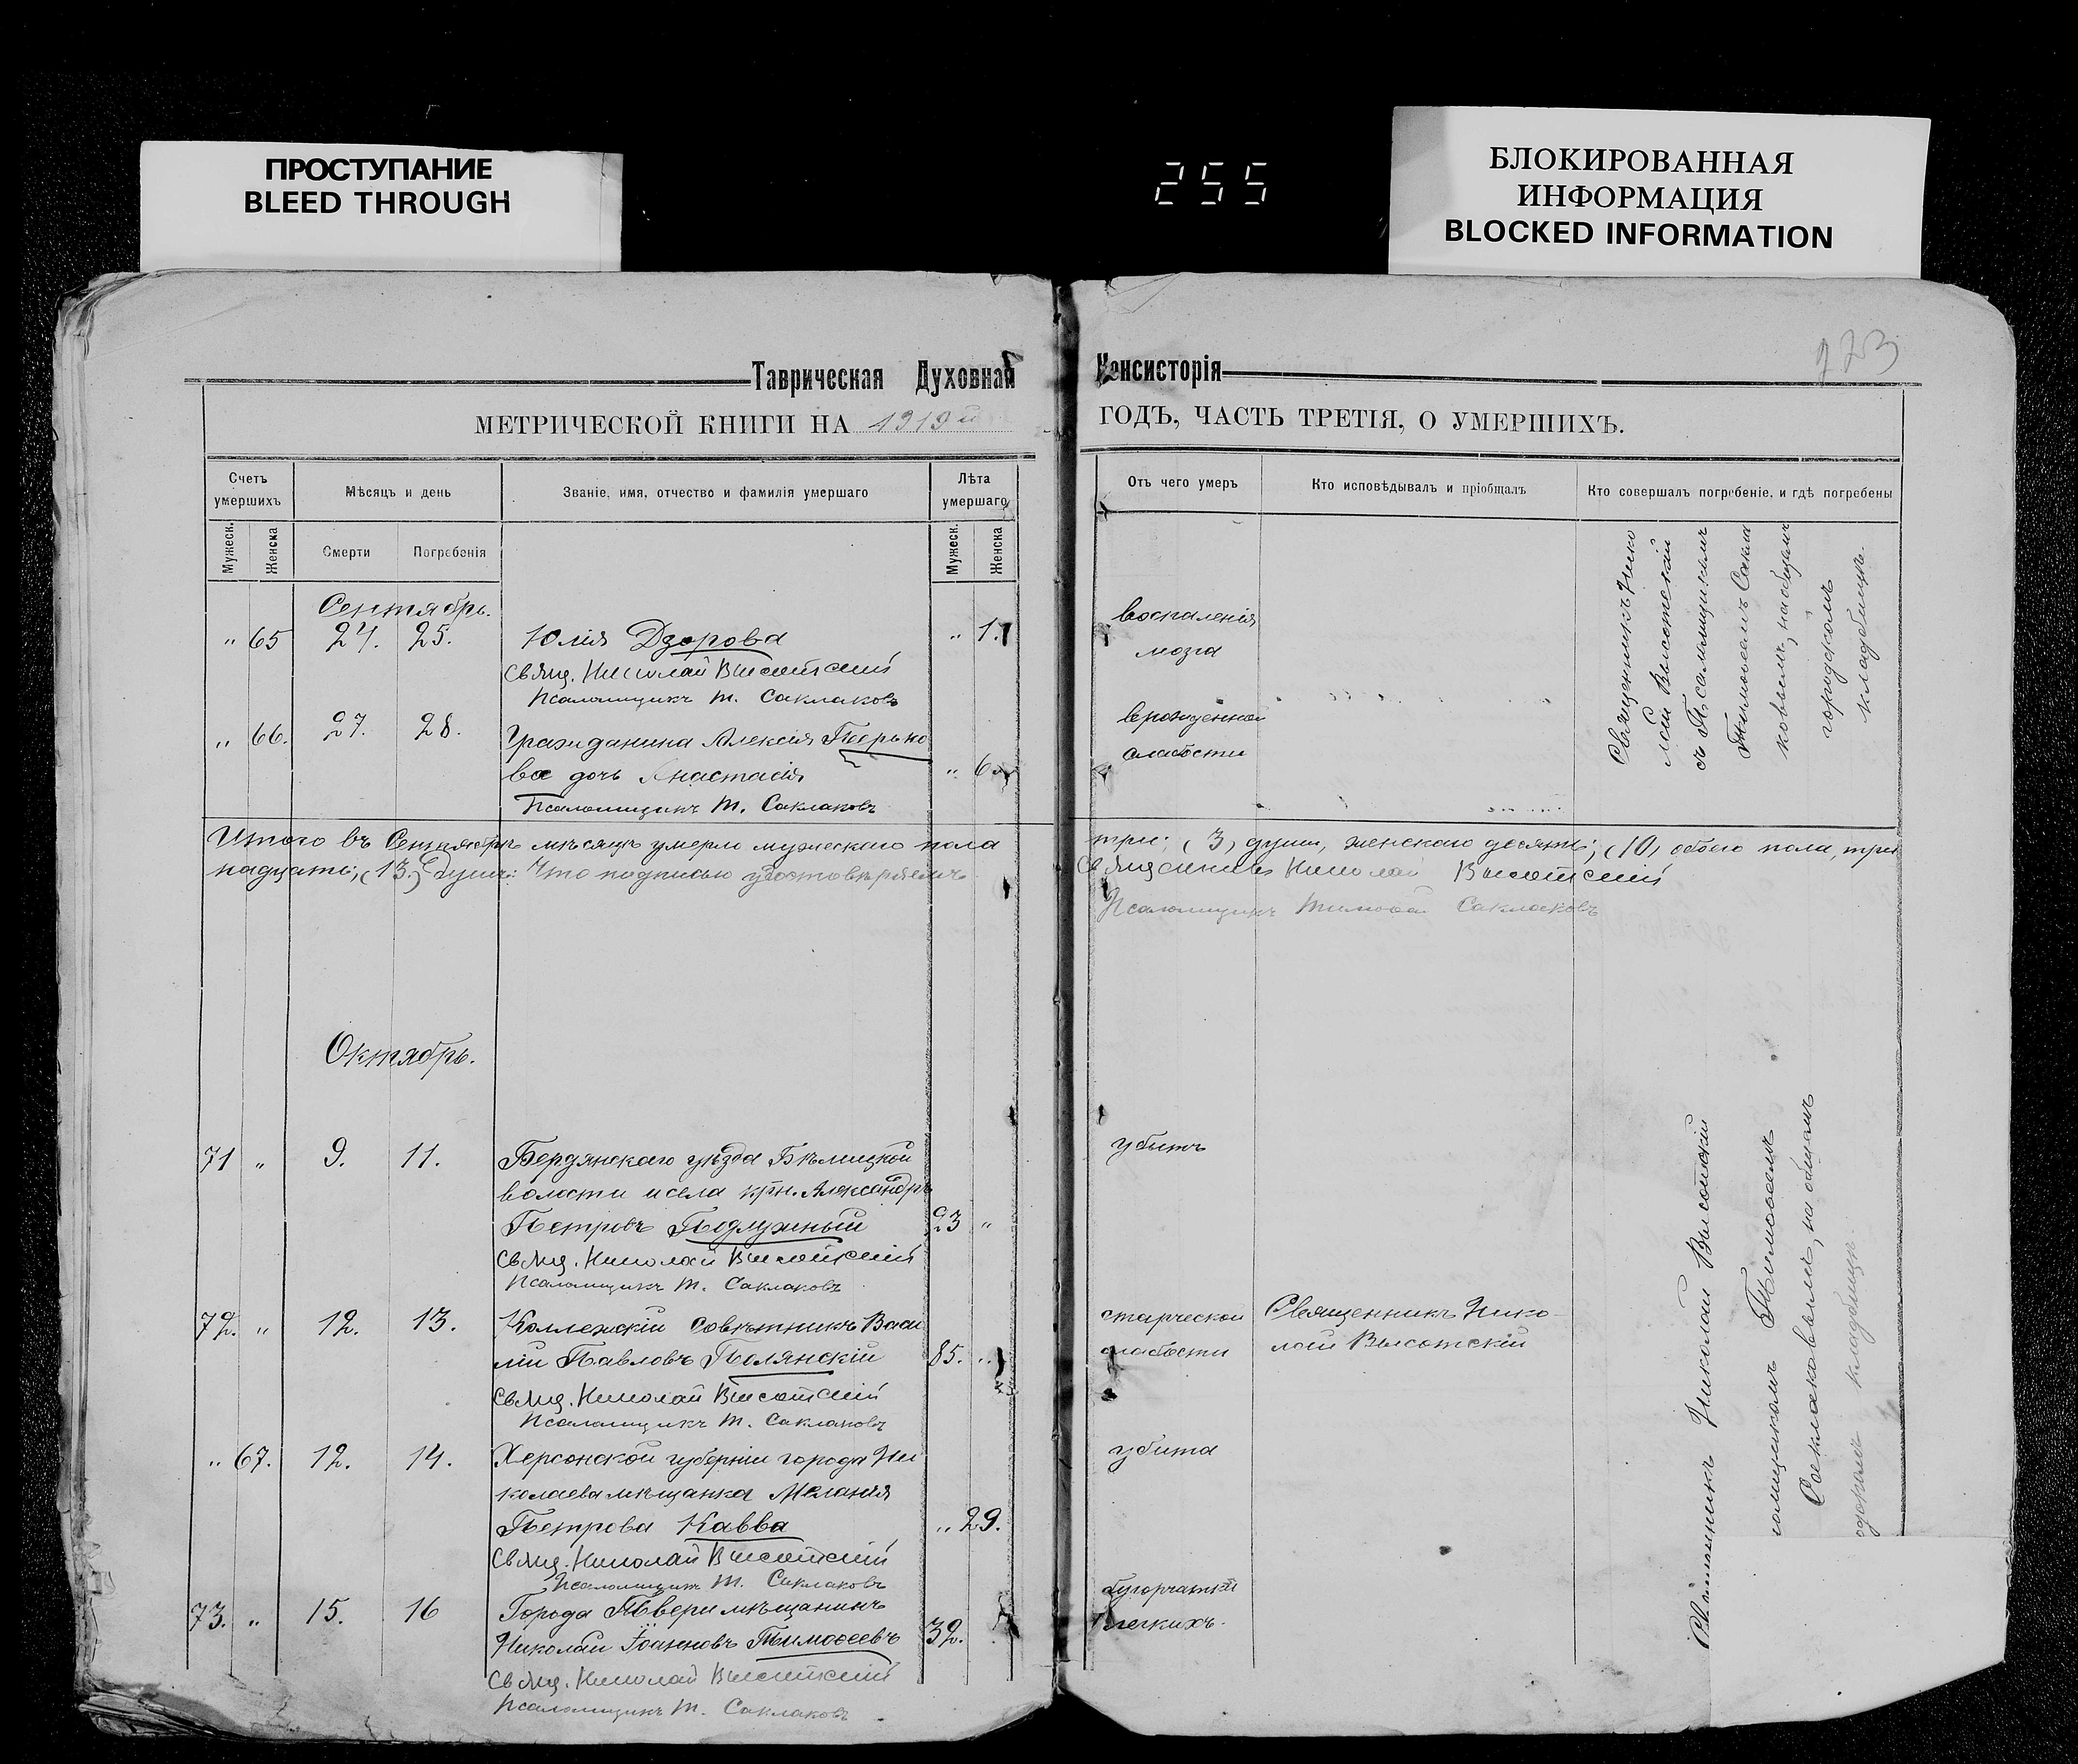 ПРОСТУПАНИЕ
BLEED THROUGH
255
БЛОКИРОВАННАЯ
ИНФОРМАЦИЯ
BLOCKED INFORMATION
723
Таврическая Духовная Консисторія
МЕТРИЧЕСКОЙ КНИГИ НА 1919й ГОДЪ, ЧАСТЬ ТРЕТІЯ, О УМЕРШИХЪ.
Счетъ умершихъ
Мѣсяцъ и день
Званіе, имя, отчество и фамилія умершаго
Лѣта умершаго
Отъ чего умеръ
Кто исповѣдывалъ и пріобщалъ
Кто совершалъ погребеніе, и гдѣ погребены
Мужеск.
Женска
Смерти
Погребенія
Мужеск.
Женска
Сентябрь.
" 65 24. 25. Юлія Дзорова " 1. воспаленія
мозга
Свящ. Николай Высотскій
Псаломщикъ Т. Саклаковъ
" 66. 27. 28. Гражданина Алексія Перько врожденной
ва дочь Анастасія " 6 слабости
Псаломщикъ Т. Саклаковъ
Священникъ Нико
лай Высотскій
съ Псаломщикомъ
Тимофеемъ Сакла
ковымъ, на общемъ
городскомъ
кладбищѣ.
Итого въ Сентябрѣ мѣсяцѣ умерло мужескаго пола три; (3) души, женскаго десять; (10) обоего пола, три
надцать; (13) душъ: Что подписью удостовѣряемъ
Священникъ Николай Высотскій
Псаломщикъ Тимофей Саклаковъ
Октябрь.
71 " 9. 11. Бердянскаго уѣзда Бѣлицкой убитъ
волости и села крн. Александръ
Петровъ Подлужный 23 "
Свящ. Николай Высотскій
Псаломщикъ Т. Саклаковъ
72. " 12. 13. Коллежскій Совѣтникъ Васи старческой Священникъ Нико-
лій Павловъ Полянскій 85. " слабости лай Высотскій
Свящ. Николай Высотскій
Псаломщикъ Т. Саклаковъ
" 67. 12. 14. Херсонской губерніи города Ни убита
колаева мѣщанка Меланія
Петрова Кавва " 29.
Свящ. Николай Высотскій
Псаломщикъ Т. Саклаковъ
73. " 15. 16 Города Твери мѣщанинъ бугорчатки
Николай Іоанновъ Тимофеевъ 32. легкихъ.
Свящ. Николай Высотскій
Псаломщикъ Т. Саклаковъ
Священникъ Николай Высотскій
Тимофеемъ
Саклаковымъ, на общемъ
кладбищѣ.